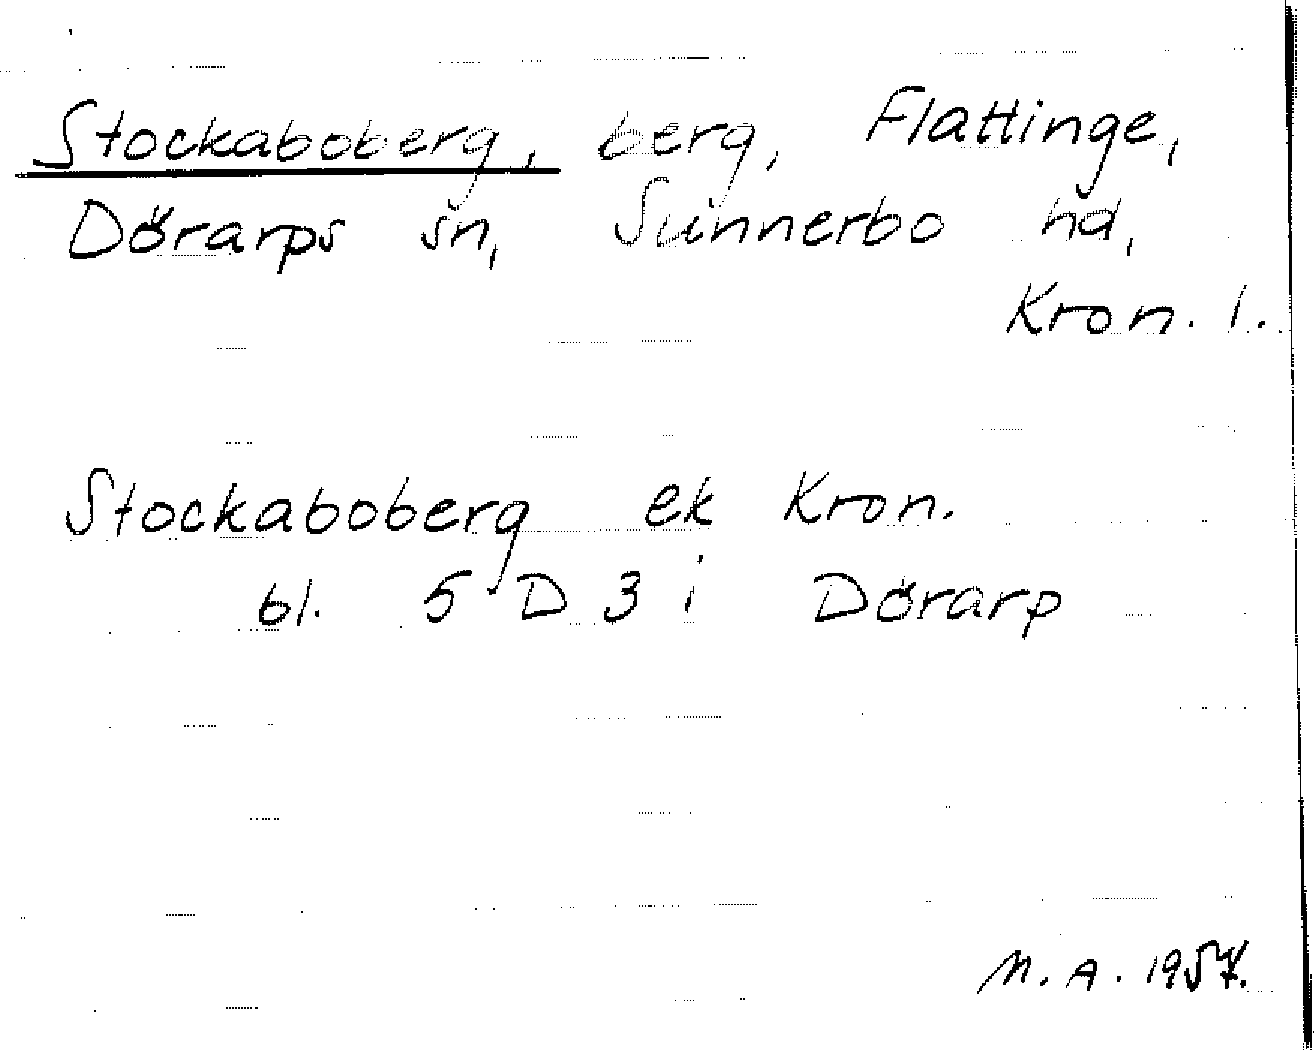 Stockaboberg, berg, Flattinge,
Dörarps sn, Sunnerbo hd,
Kron. l.
Stockaboberg ek Kron.
bl. 5 D 3 i Dörarp
M. A. 1957.